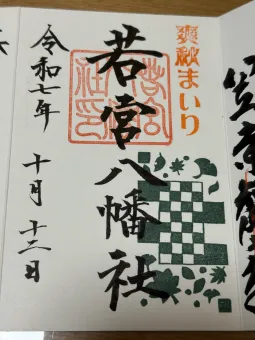 爽秋まいり
若宮八幡社
令和七年 十月 十二日